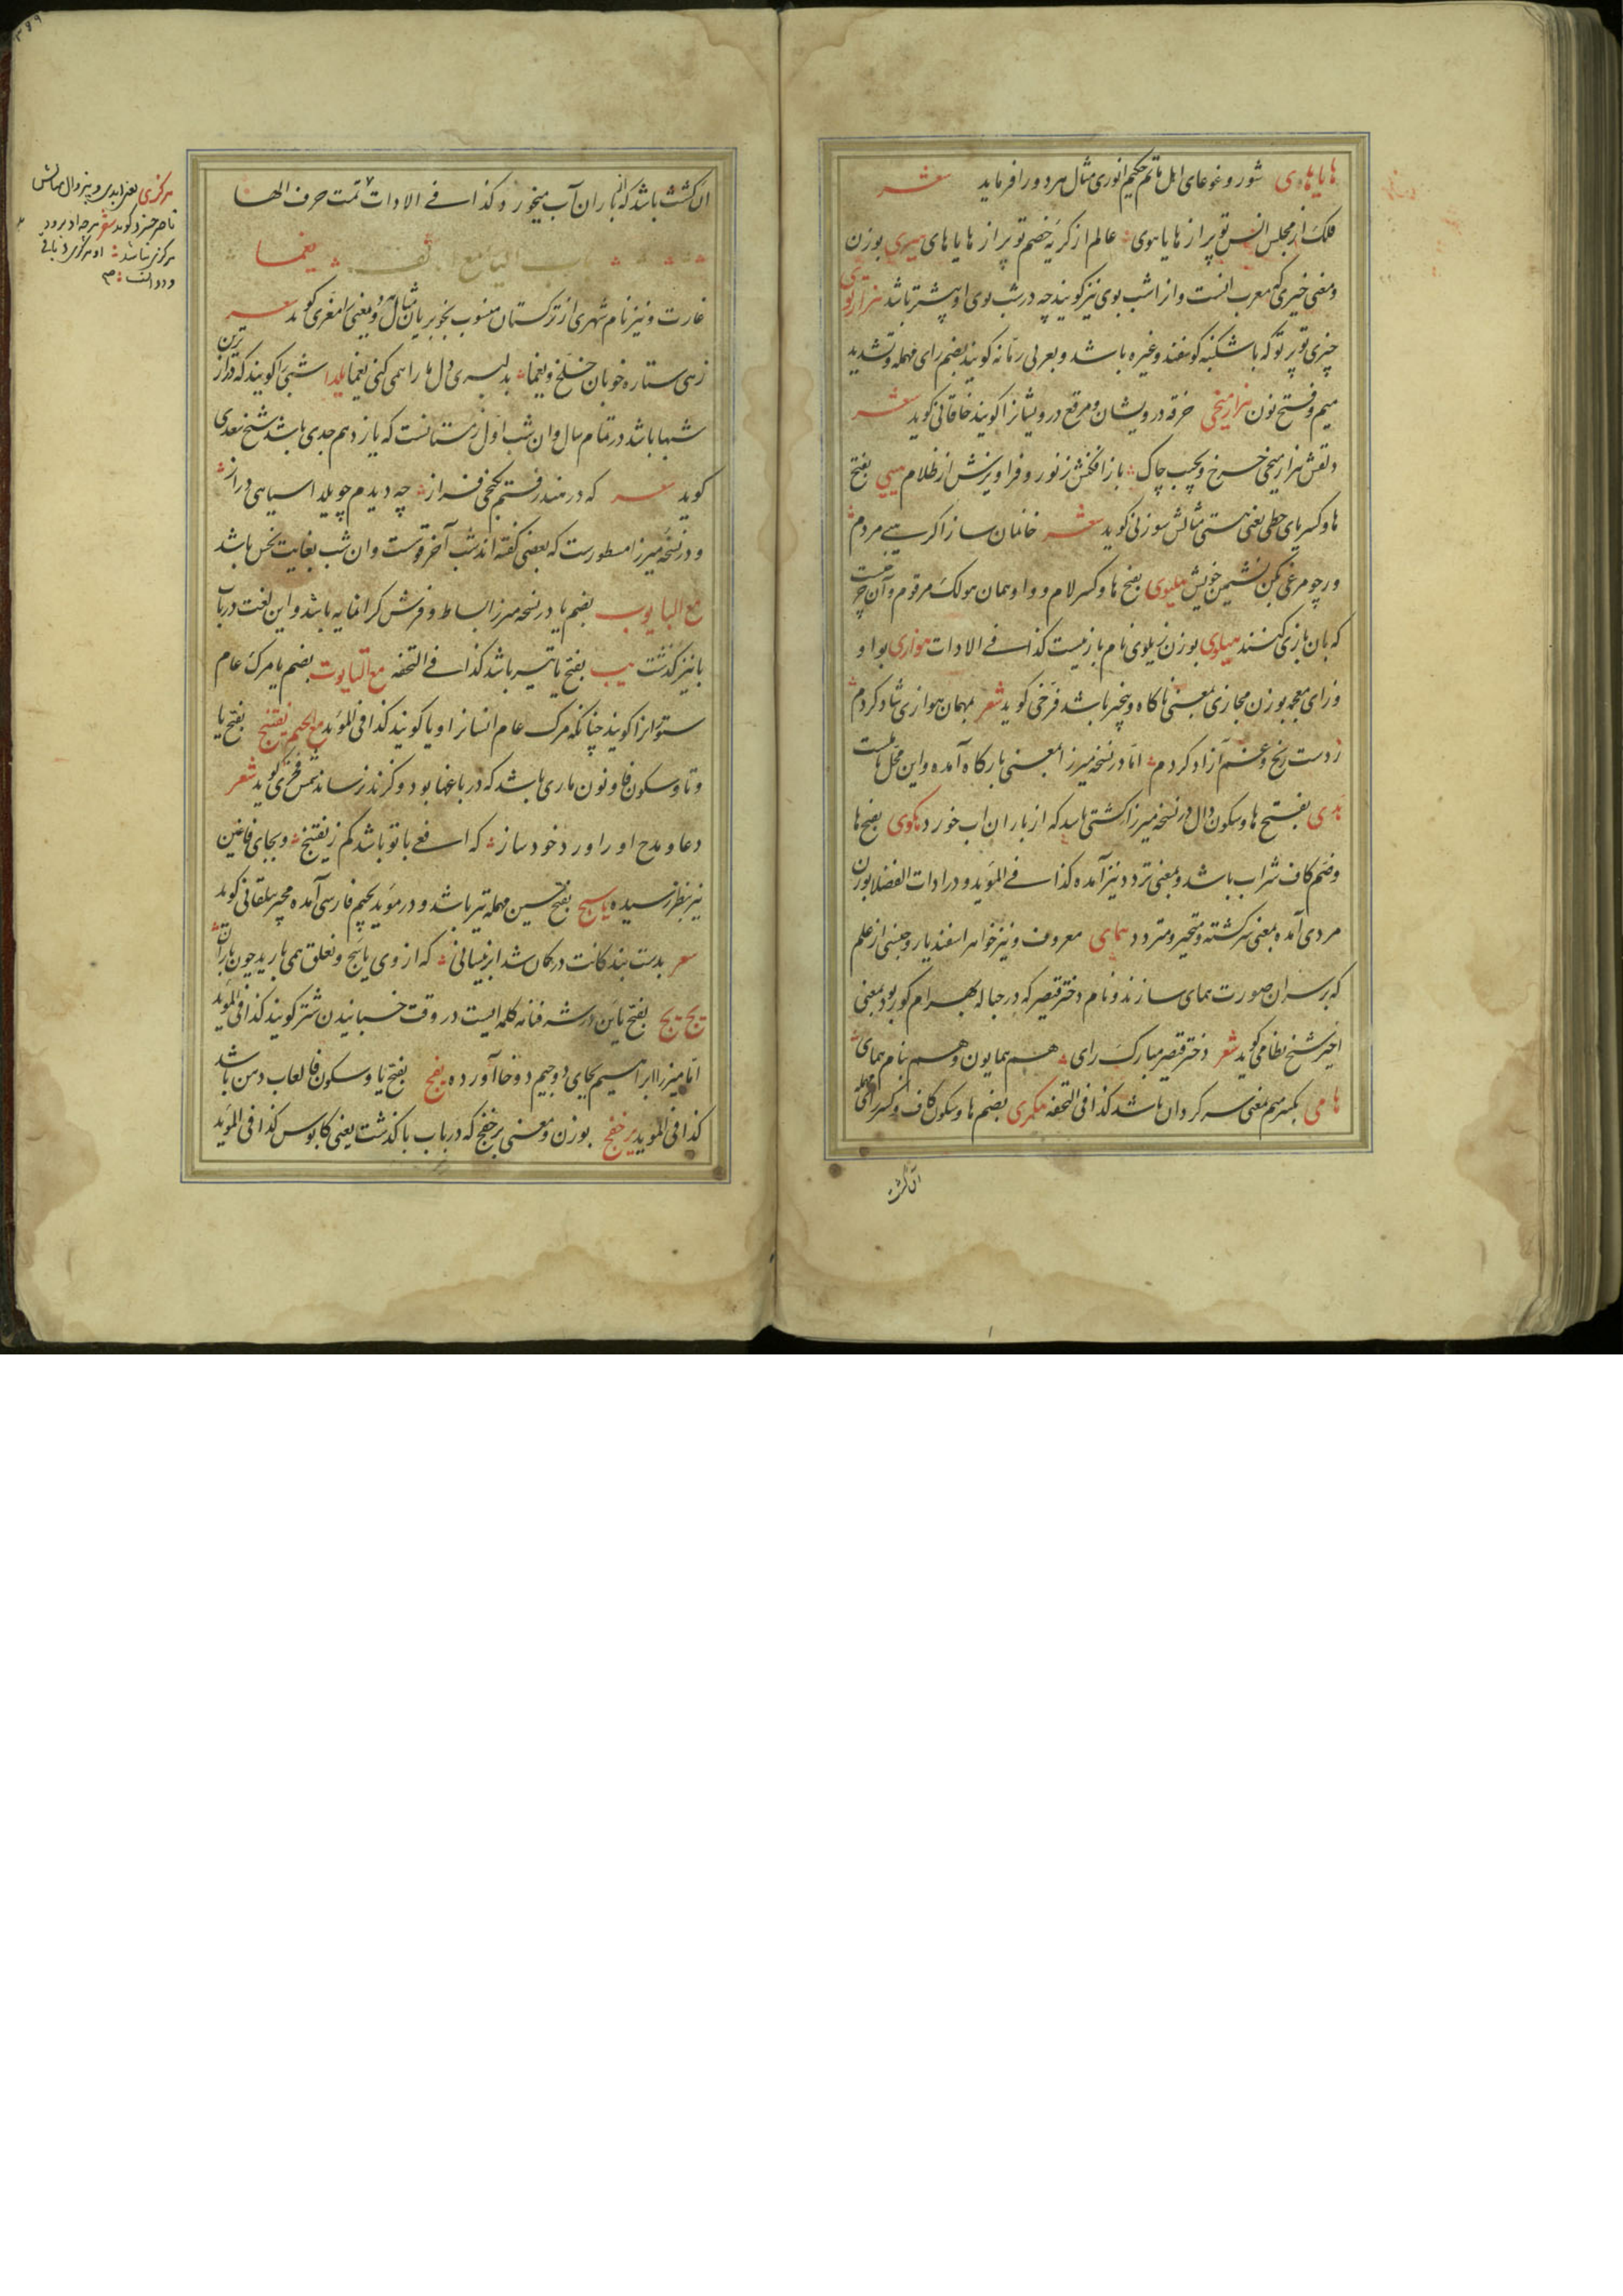 هایاهای شور و غوغای اهل ماتم حکیم انوری مثال هر دو را فرماید شعر
فلک از مجلس انس تو پر از هایاهوی عالم از گریه خصم تو پر از هایاهای هیری بوزن
و معنی خیری که معرب انست و از اشب بوی نیز گویند چه در شب بوی او بیشتر باشد هزارتوی
چیزی تو بر تو که با شکنبه گوسفند و غیره باشد و بعربی رمانه گویند بضم رای مهمله و تشدید
میم و فتح نون هزارمیخی خرقه درویشان و مرقع درویشانرا گویند خاقانی گوید شعر
دلقش هزارمیخی چرخ و بجیب چاک باز افکنش ز نور و فراویزش از ظلام هیی بفتح
ها و کسر یای حطی یعنی هستی مثالش سوزنی گوید شعر خانمان ساز اگر هیی مردم
ورچو مرغی بکن نشیمن خویش هلیوی بفتح ها و کسر لام و واو همان هولک مرقوم و آن چیزیست
که بان بازی کنند هیلوی بوزن نام بازیست کذا فی الادات هوازی بواو
و زای معجمه بوزن مجازی بمعنی ناگاه و بیخبر باشد فرخی گوید شعر بمهمان هوازی شاد کردم
ز دست رنج و غم آزاد کردم اما در نسخه میرزا بمعنی بارگاه آمده و این محل
هدی بفتح ها و سکون دال در نسخه میرزا کشتی باشد که از باران اب خورد هکوی بفتح ها
و ضم کاف شراب باشد و بمعنی تردد نیز آمده کذا فی المؤید و در ادات الفضلا بوزن
مردی آمده بمعنی سرگشته و متحیر و متردد همای معروف و نیز خواهر اسفندیار و جنسی از علم
که بر سر ان صورت همای سازند و نام دختر قیصر که در حباله بهرام گور بود بمعنی
اخیر شیخ نظامی گوید شعر دختر قیصر مبارک رای هم همایون و هم بنام همای
هامی بکسر میم بمعنی سرگردان باشد کذا فی التحفه هکری بضم ها و سکون کاف و کسر رای
ان کشت
ان کشت باشد که از باران آب میخورد و کذا فی الادات تمت حرف الها
باب الیا مع الالف یغما
غارت و نیز نام شهری از ترکستان منسوب بخوبرویان مثال دو معنی را مغزی گوید شعر
زهی ستاره خوبان خلخ و یغما بدلبری دل ما را همی کنی یغما یلدا شبی را گویند که درازترین
شبها باشد در تمام سال و ان شب اول زمستانست که یازدهم جدی باشد شیخ سعدی
گوید شعر که در مندر رفتم بکنجی فراز چه دیدم چو یلدا سیاهی دراز
و در نسخه میرزا مسطورست که بعضی گفته اند شب آخر قوست و ان شب بغایت نحس باشد
مع البا یوب بضم یا در نسخه میرزا بساط و فرش گرانمایه باشد و این لغت در باب
با نیز گذشت یب بفتح یا تیر باشد کذا فی التحفه مع التا یوت بضم یا مرگ عام
ستورانرا گویند چنانکه مرگ عام انسانرا وبا گویند کذا فی المؤید مع الجیم یفتنج بفتح یا
و تا و سکون فا و نون ماری باشد که در باغها بود و گزند نرساند شمس فخری گوید شعر
دعا و مدح او را ورد خود ساز که افعی با تو باشد کم ز یفتنج و بجای فا غین
نیز بنظر رسیده یاسج بفتح سین مهمله تیر باشد و در مؤید بجیم فارسی آمده مجیر بیلقانی گوید
شعر بدست بندگانت در کمان شد ابر نیسانی که از وی یاسج و نغلق همی بارید چون باران
یج یج بفتح یاین در شرفنامه کلمه ایست در وقت خسبانیدن شتر گویند کذا فی المؤید
اما میرزا ابراهیم بجای دو جیم دو خا آورده یفج بفتح یا و سکون فا لعاب دهن باشد
کذا فی المؤید برخفج بوزن و معنی برخفج که در باب با گذشت یعنی کابوس کذا فی المؤید
هرگزی یعنی ابدی و بیزوال مثالش
ناصر خسرو گوید شعر هرچه او برود
هرگزی نباشد او هرگزی و باقی